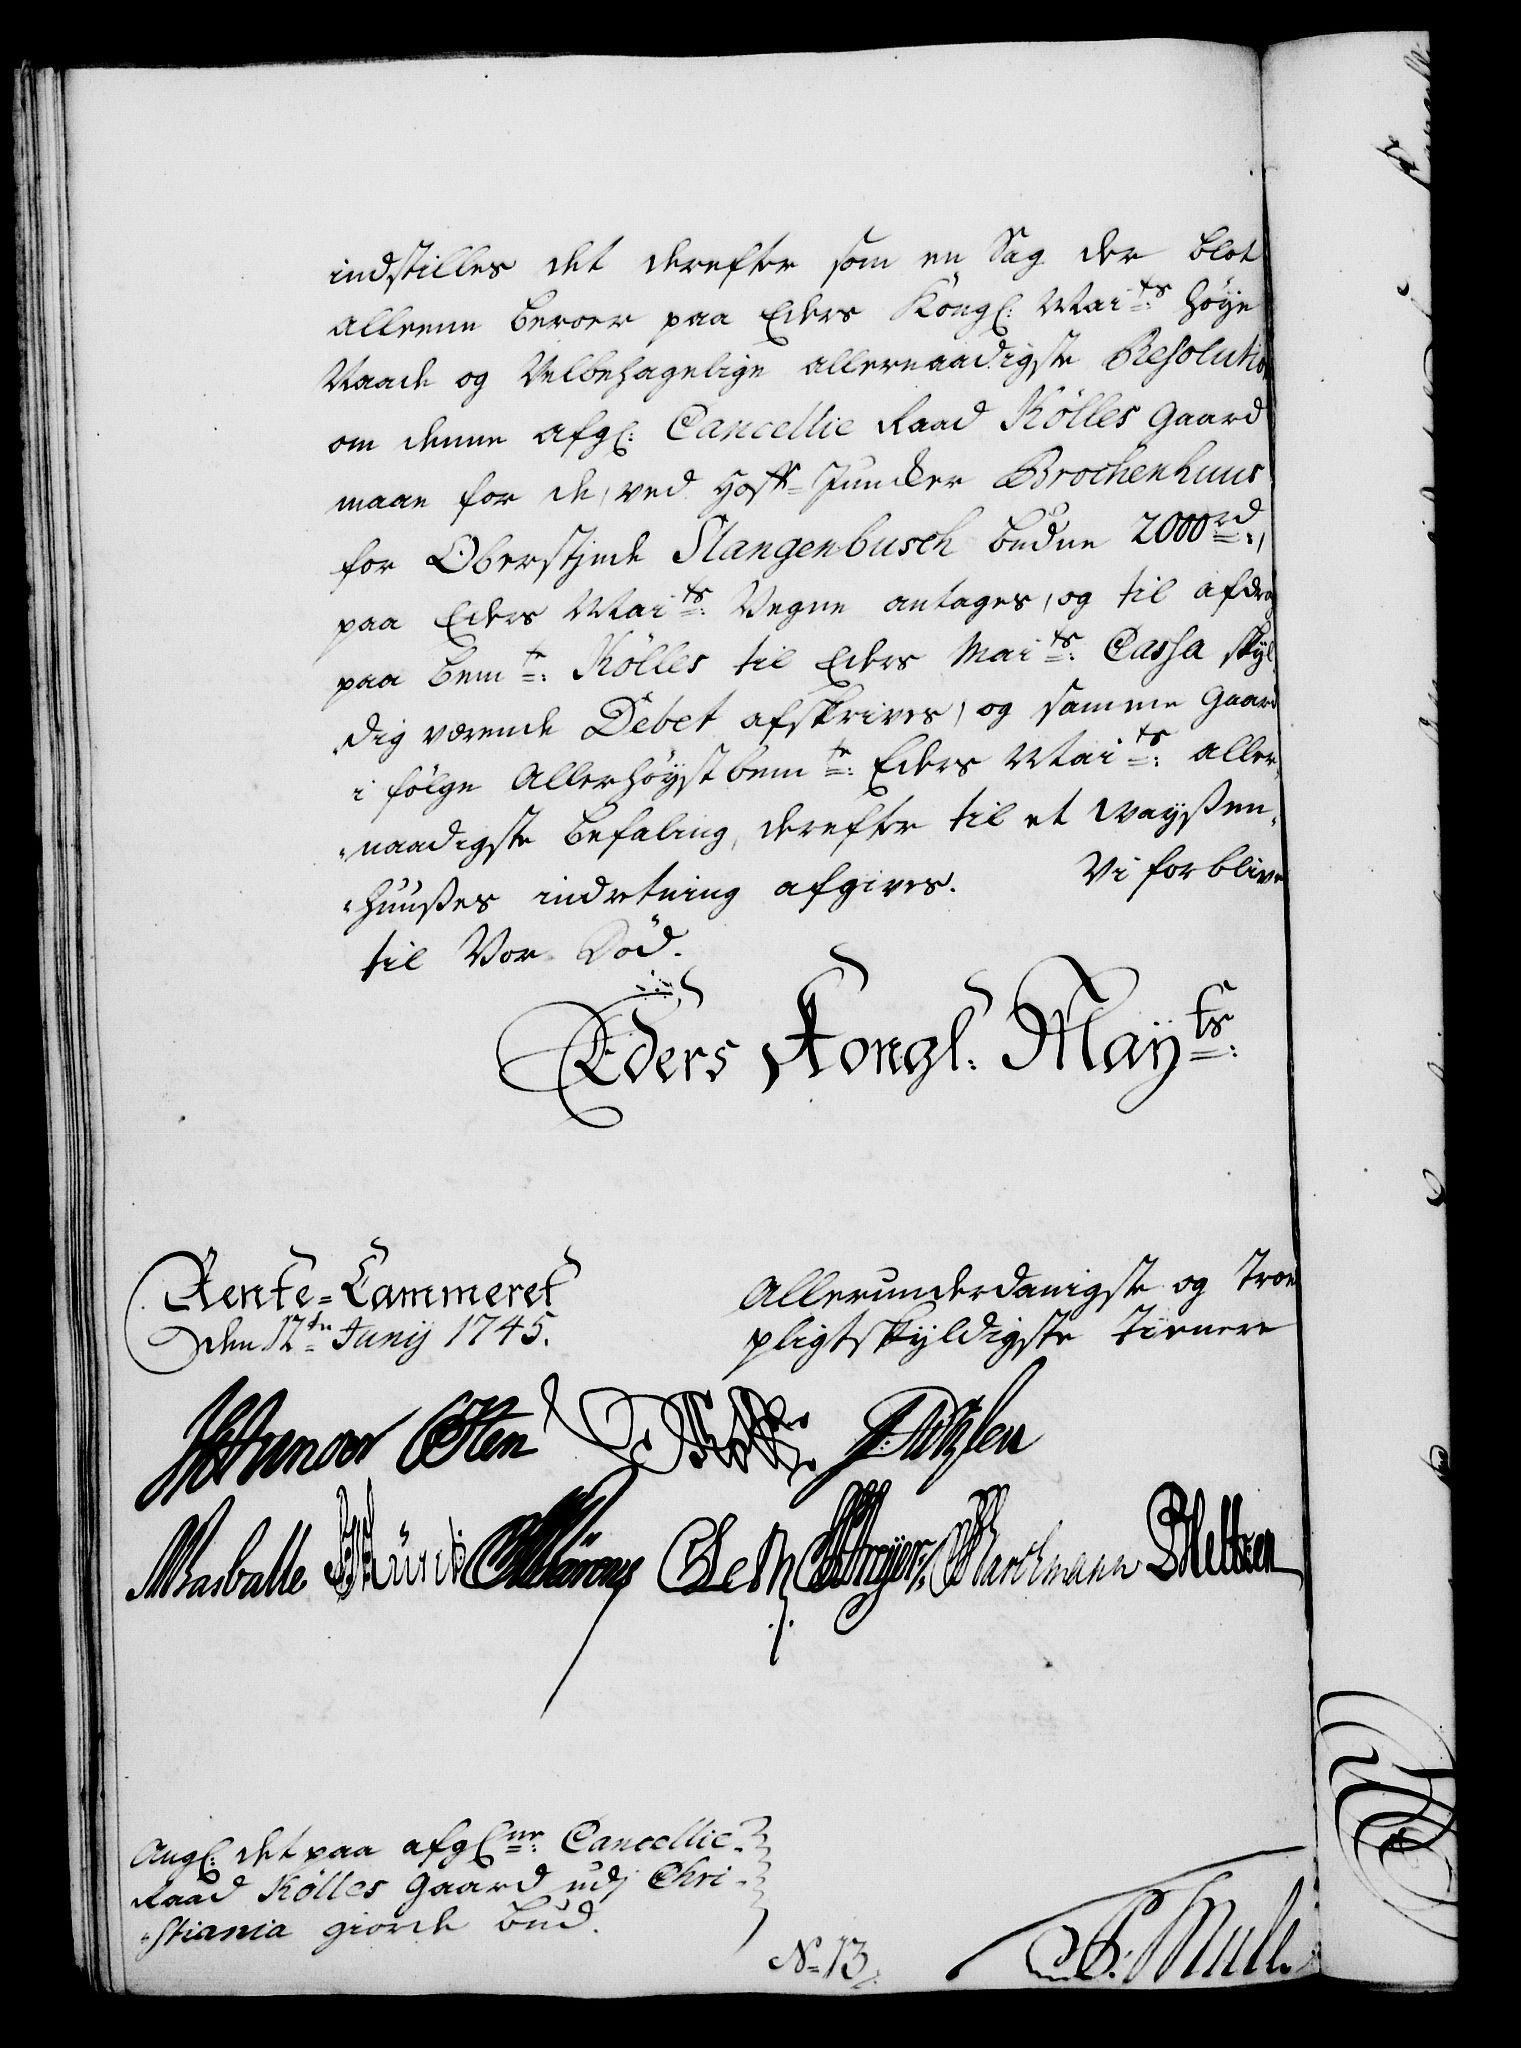 indstilles det derefter som en Sag der blot
alleene beroer paa Eders Kongl: Maits: höye
Naade og Velbehagelige allernaadigste Resolution
om denne afgl: Cancellie Raad Kölles Gaard
maae for de, ved Hoff-Juncker Brochenhuus
for Oberstinde Stangenbusch budne 2000rd:,
paa Eders Maits: Vegne antages, og til afdrag
paa bemte: Kölles til Eders Maits: Cassa skyl
dig værende Debet afskrives, og samme Gaard
i fölge Allerhöystbemte: Eders Maits: aller,
naadigste befaling, derefter til et Waysen,
huuses indretning afgives. Vi forblive
til Vor Död.
Eders Kongl. Mayts:
Rente-Cammeret
den 12te Junij 1745.
Allerunderdanigste og Troe
pligtskyldigste Tienere
Osten
Angl: det paa afglne: Cancellie-
Raad Kölles Gaard udj Chri-
stiania giorde bud.
No 13